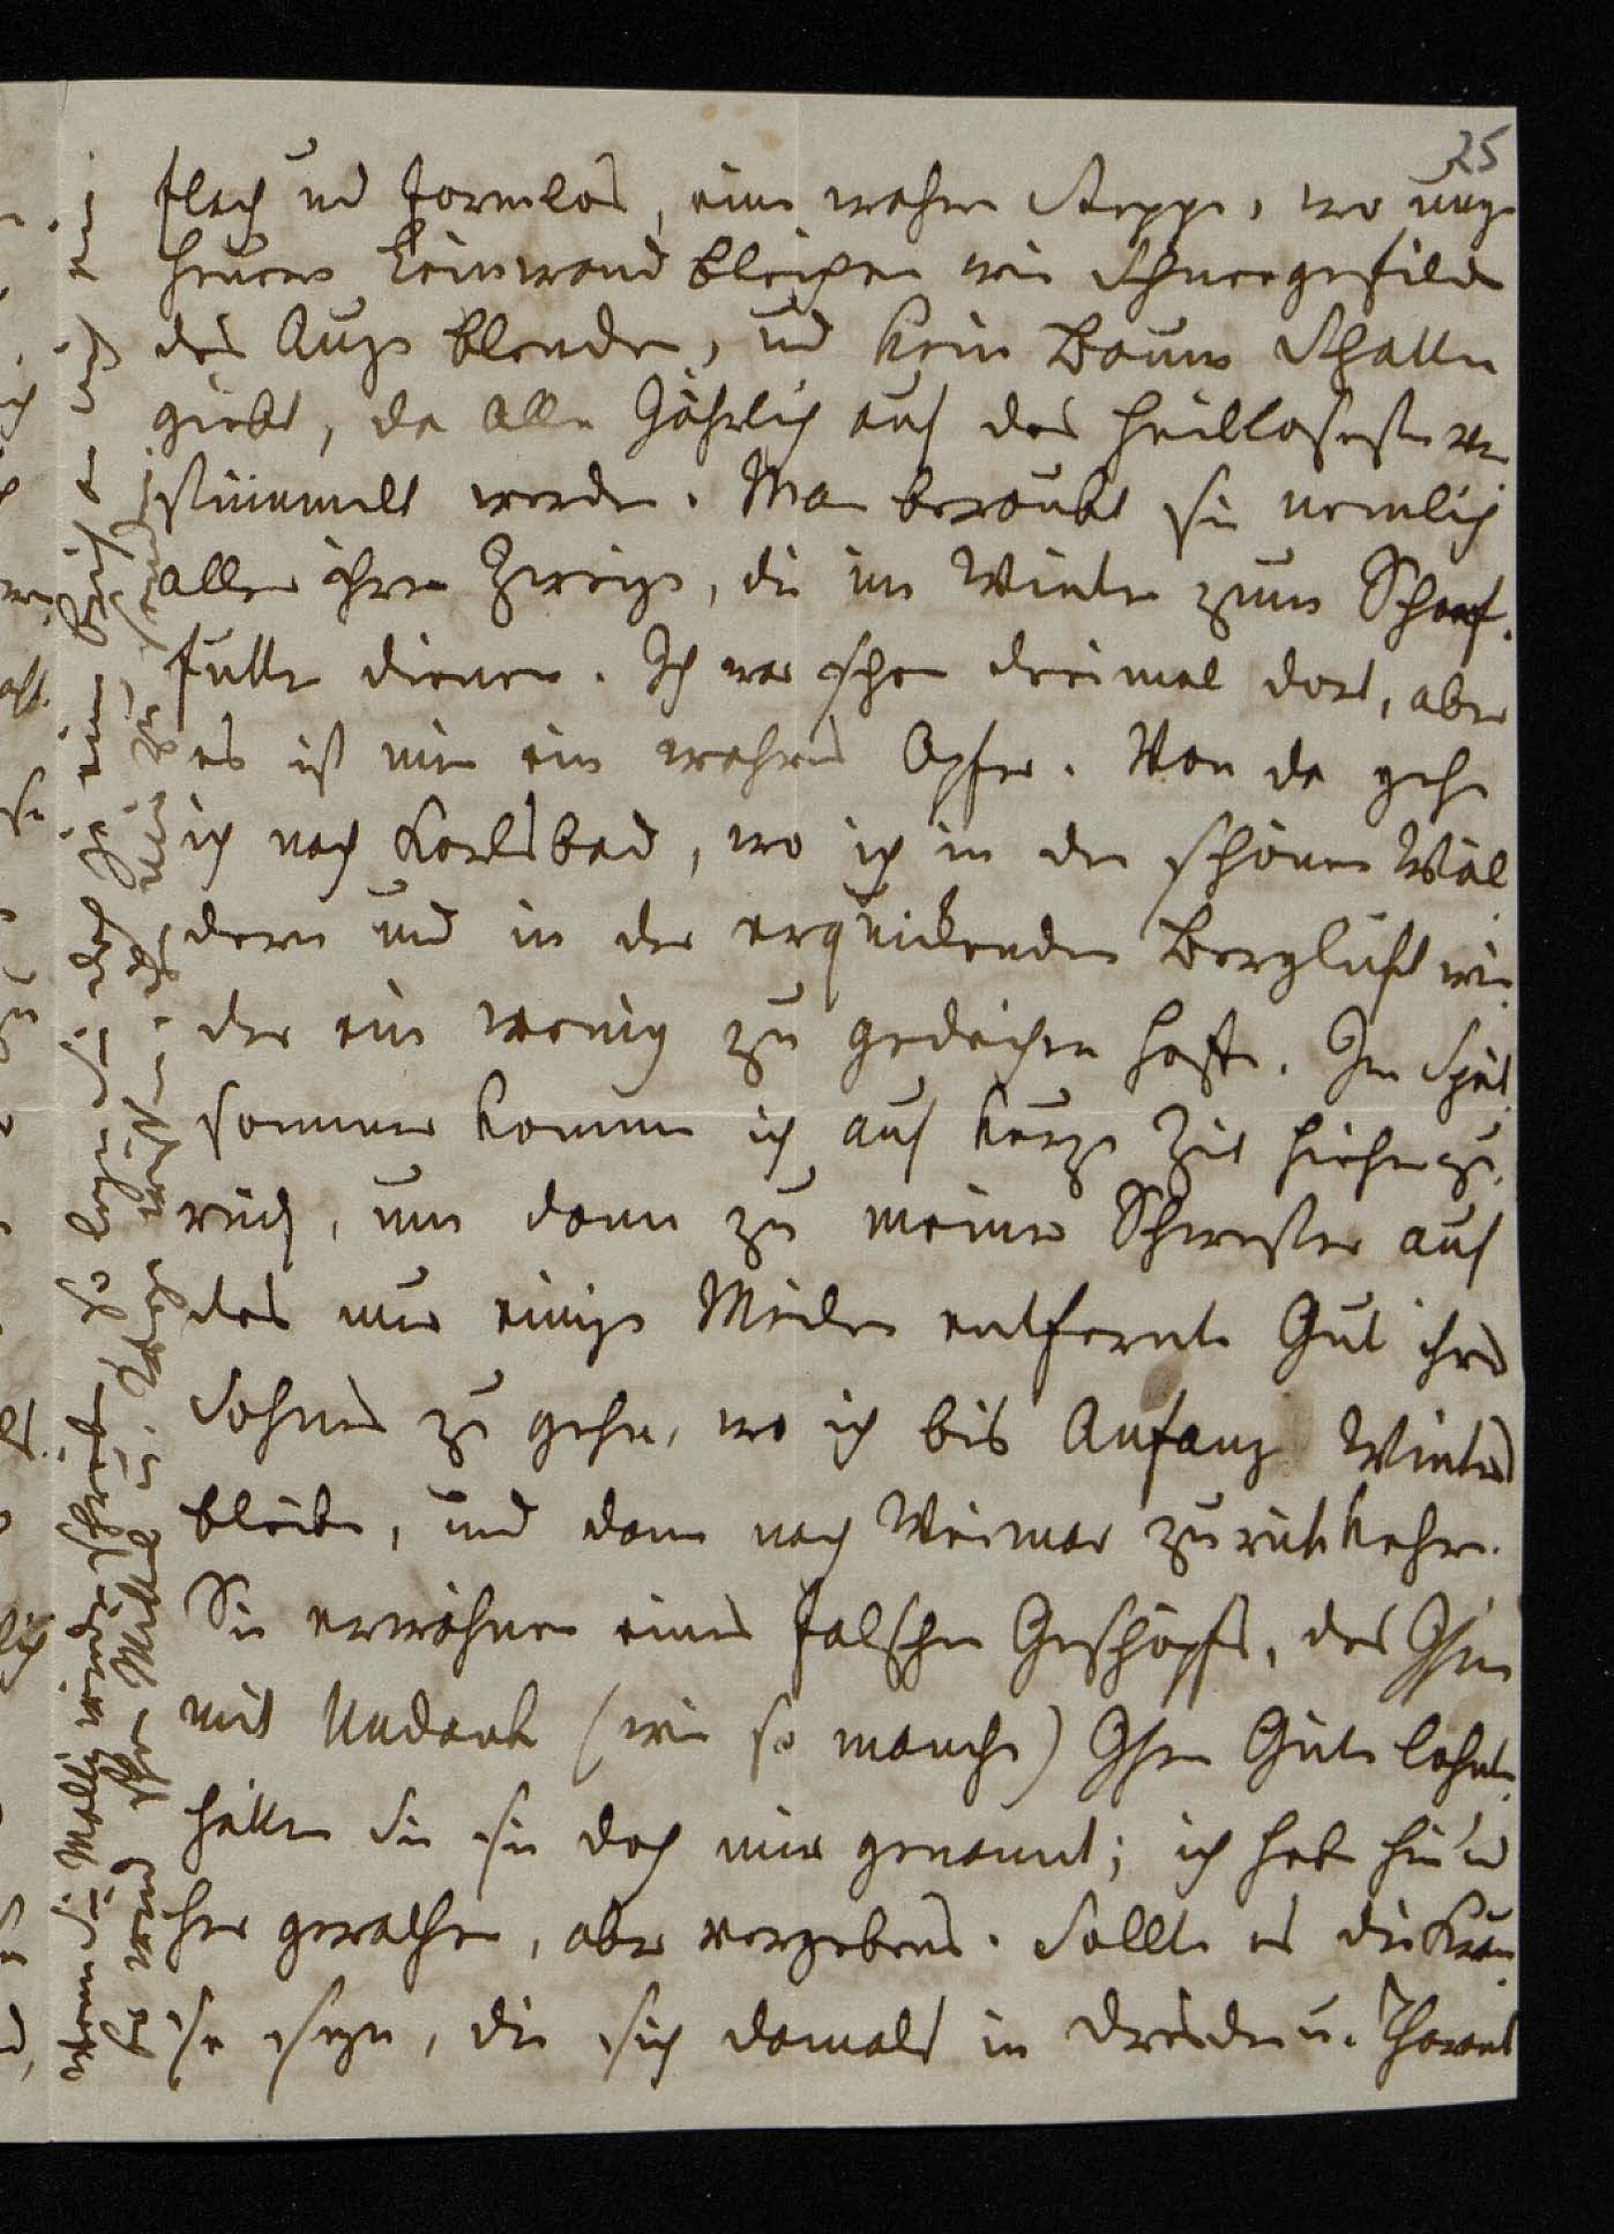 25
flach und formlos, eine wahre Steppe, wo unge
heuere Leinwand bleichen wie Schneegefilde
das Auge blenden, und kein Baum Schatten
giebt, da alle jährlich auf das heilloseste ver
stümmelt werden. Man beraubt sie nemlich
aller ihrer Zweige, die im Winter zum Schaaf.
futter dienen. Ich war schon dreimal dort, aber
es ist mir ein wahres Opfer. Von da gehe
ich nach Karlsbad, wo ich in den schönen Wäl
dern und in der erquickenden Bergluft wie
der ein wenig zu gedeihen hoffe. Im Spät
sommer komme ich auf kurze Zeit hieher zu.
rück, um dann zu meiner Schwester auf
das nur einige Meilen entfernte Gut ihres
Sohnes zu gehen, wo ich bis Anfang Winters
bleibe, und dann nach Weimar zurückkehre.
Sie erwähnen eines falschen Geschöpfs, das Ihnen
mit Undank (wie so manche) Ihre Güte lohnte.
hätten Sie sie doch mir genannt; ich habe hin u
her gerathen, aber vergebens. Sollte es die Krau
se seyn, die sich damals in Dresden u. Tharand
wenn Sie Mally wieder schreiben so legen Sie doch ja einen Brief an mich